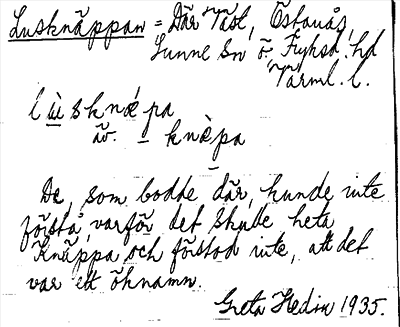 Lusknäppan = Där Väst, Östanås,
Sunne sn ö. Fryksd. hd
Värml. l.
lùsknæpa
äv. – knæ̀pa
De, som bodde där, kunde inte
förstå, varför det skulle heta
Knäppa och förstod inte, att det
var ett öknamn.
Greta Hedin 1935.